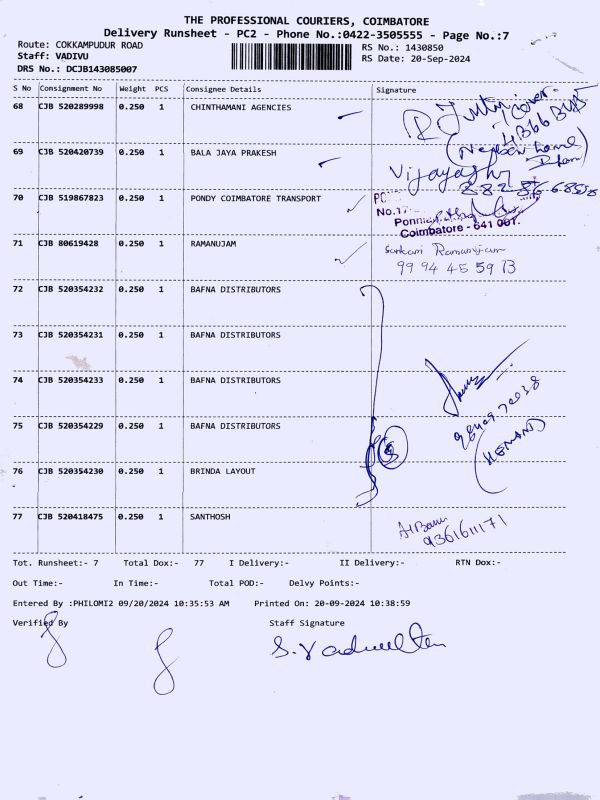 THE PROFESSIONAL COURIERS, COIMBATORE
Delivery Runsheet - PC2 - Phone No.:0422-3505555 - Page No.:7
Route: COKKAMPUDUR ROAD RS No.: 1430850
Staff: VADIVU RS Date: 20-Sep-2024
DRS No.: DCJB143085007
S No Consignment No Weight PCS Consignee Details Signature
68 CJB 520289998 0.250 1 CHINTHAMANI AGENCIES
69 CJB 520420739 0.250 1 BALA JAYA PRAKESH
70 CJB 519867823 0.250 1 PONDY COIMBATORE TRANSPORT
No.17
Coimbatore - 641 001.
71 CJB 80619428 0.250 1 RAMANUJAM
Sankari Ramanujam
99 94 45 59 73
72 CJB 520354232 0.250 1 BAFNA DISTRIBUTORS
73 CJB 520354231 0.250 1 BAFNA DISTRIBUTORS
74 CJB 520354233 0.250 1 BAFNA DISTRIBUTORS
75 CJB 520354229 0.250 1 BAFNA DISTRIBUTORS
(HEMANT)
76 CJB 520354230 0.250 1 BRINDA LAYOUT
77 CJB 520418475 0.250 1 SANTHOSH
9361611171
Tot. Runsheet:- 7 Total Dox:- 77 I Delivery:- II Delivery:- RTN Dox:-
Out Time:- In Time:- Total POD:- Delvy Points:-
Entered By :PHILOMI2 09/20/2024 10:35:53 AM Printed On: 20-09-2024 10:38:59
Verified By Staff Signature